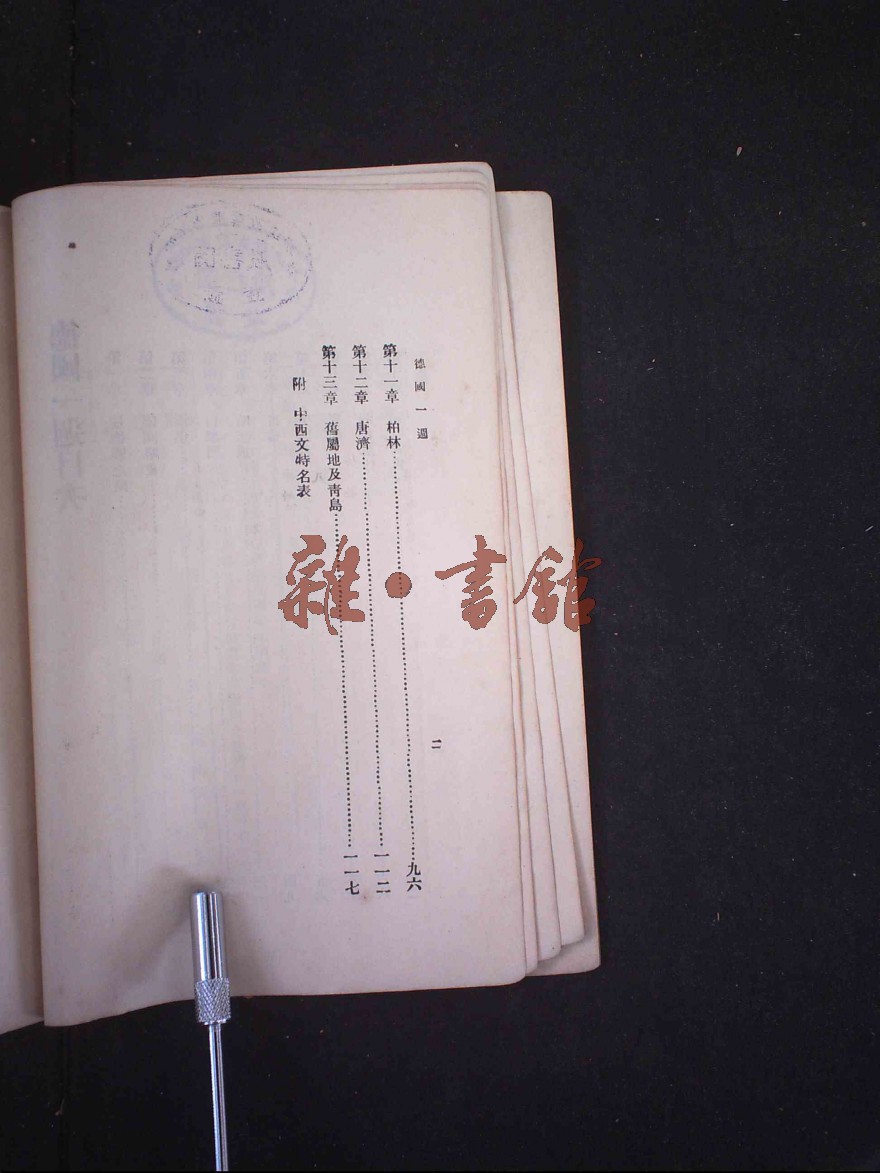 德國一週
二
第十一章 柏林……九六
第十二章 唐濟……一一二
第十三章 舊屬地及靑島……一一七
附 中西文特名表
雜·書館